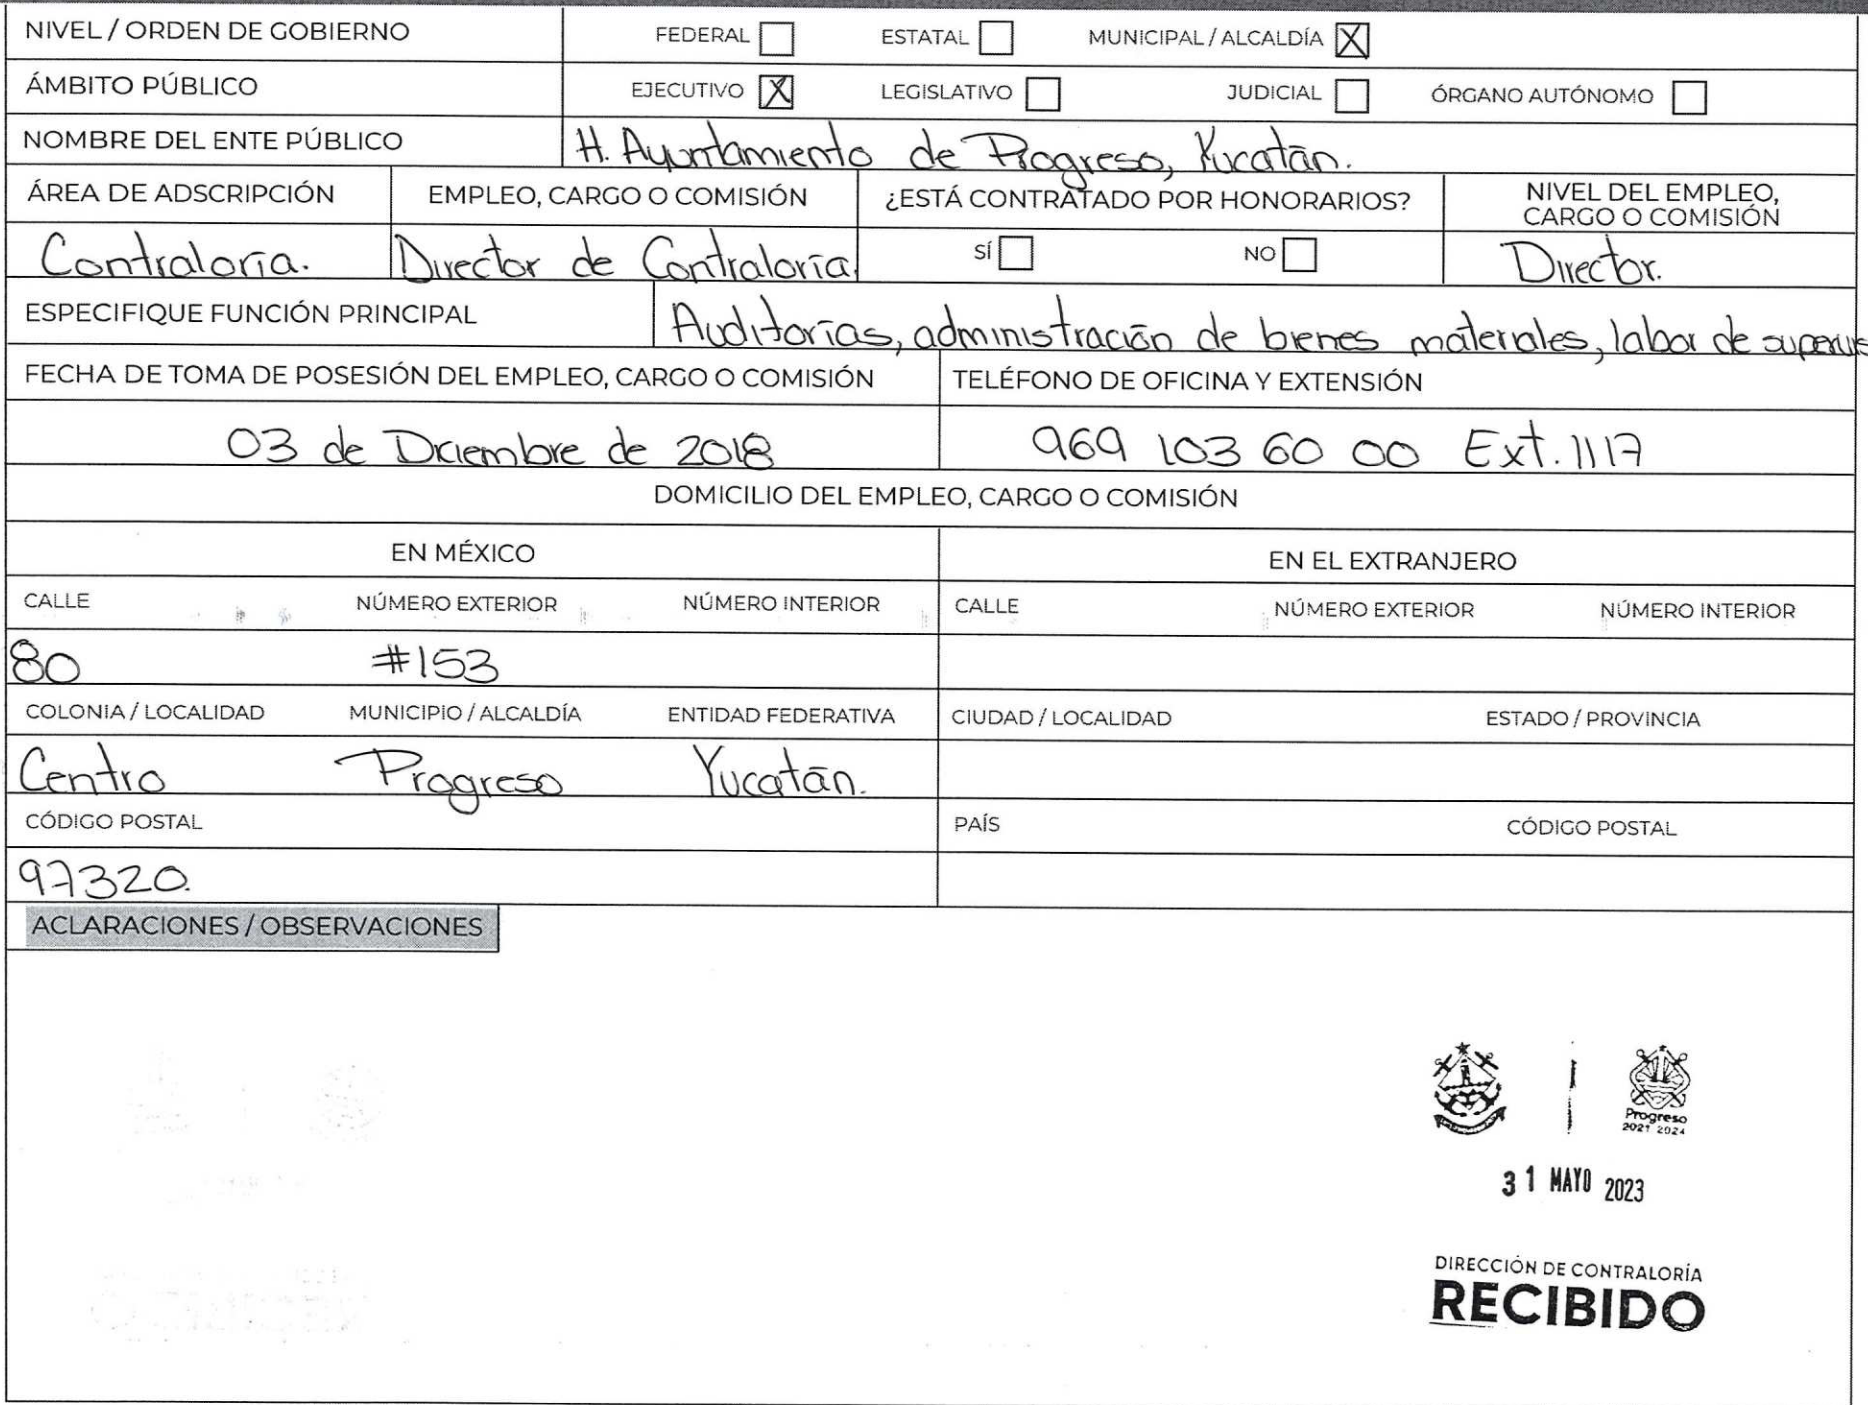 NIVEL / ORDEN DE GOBIERNO FEDERAL ESTATAL MUNICIPAL / ALCALDÍA X
ÁMBITO PÚBLICO EJECUTIVO X LEGISLATIVO JUDICIAL ÓRGANO AUTÓNOMO
NOMBRE DEL ENTE PÚBLICO H. Ayuntamiento de Progreso, Yucatán.
ÁREA DE ADSCRIPCIÓN EMPLEO, CARGO O COMISIÓN ¿ESTÁ CONTRATADO POR HONORARIOS? NIVEL DEL EMPLEO,
CARGO O COMISIÓN
Contraloría. Director de Contraloría. SÍ NO Director.
ESPECIFIQUE FUNCIÓN PRINCIPAL Auditorías, administración de bienes materiales, labor de supervis
FECHA DE TOMA DE POSESIÓN DEL EMPLEO, CARGO O COMISIÓN TELÉFONO DE OFICINA Y EXTENSIÓN
03 de Diciembre de 2018 969 103 60 00 Ext. 1117
DOMICILIO DEL EMPLEO, CARGO O COMISIÓN
EN MÉXICO EN EL EXTRANJERO
CALLE NÚMERO EXTERIOR NÚMERO INTERIOR CALLE NÚMERO EXTERIOR NÚMERO INTERIOR
80 #153
COLONIA / LOCALIDAD MUNICIPIO / ALCALDÍA ENTIDAD FEDERATIVA CIUDAD / LOCALIDAD ESTADO / PROVINCIA
Centro Progreso Yucatán.
CÓDIGO POSTAL PAÍS CÓDIGO POSTAL
97320.
ACLARACIONES / OBSERVACIONES
Progreso
2021 2024
31 MAYO 2023
DIRECCIÓN DE CONTRALORÍA
RECIBIDO